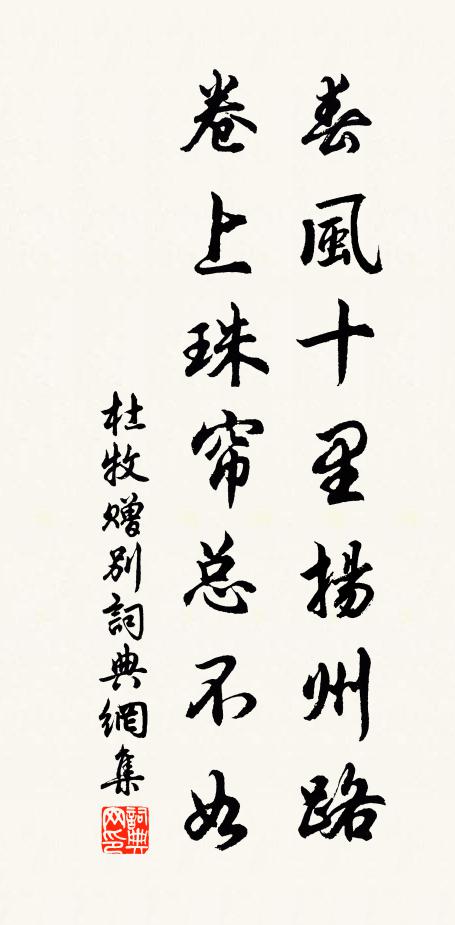 春風十里揚州路
卷上珠帘总不如
杜牧赠别詞典網集
詞典网印